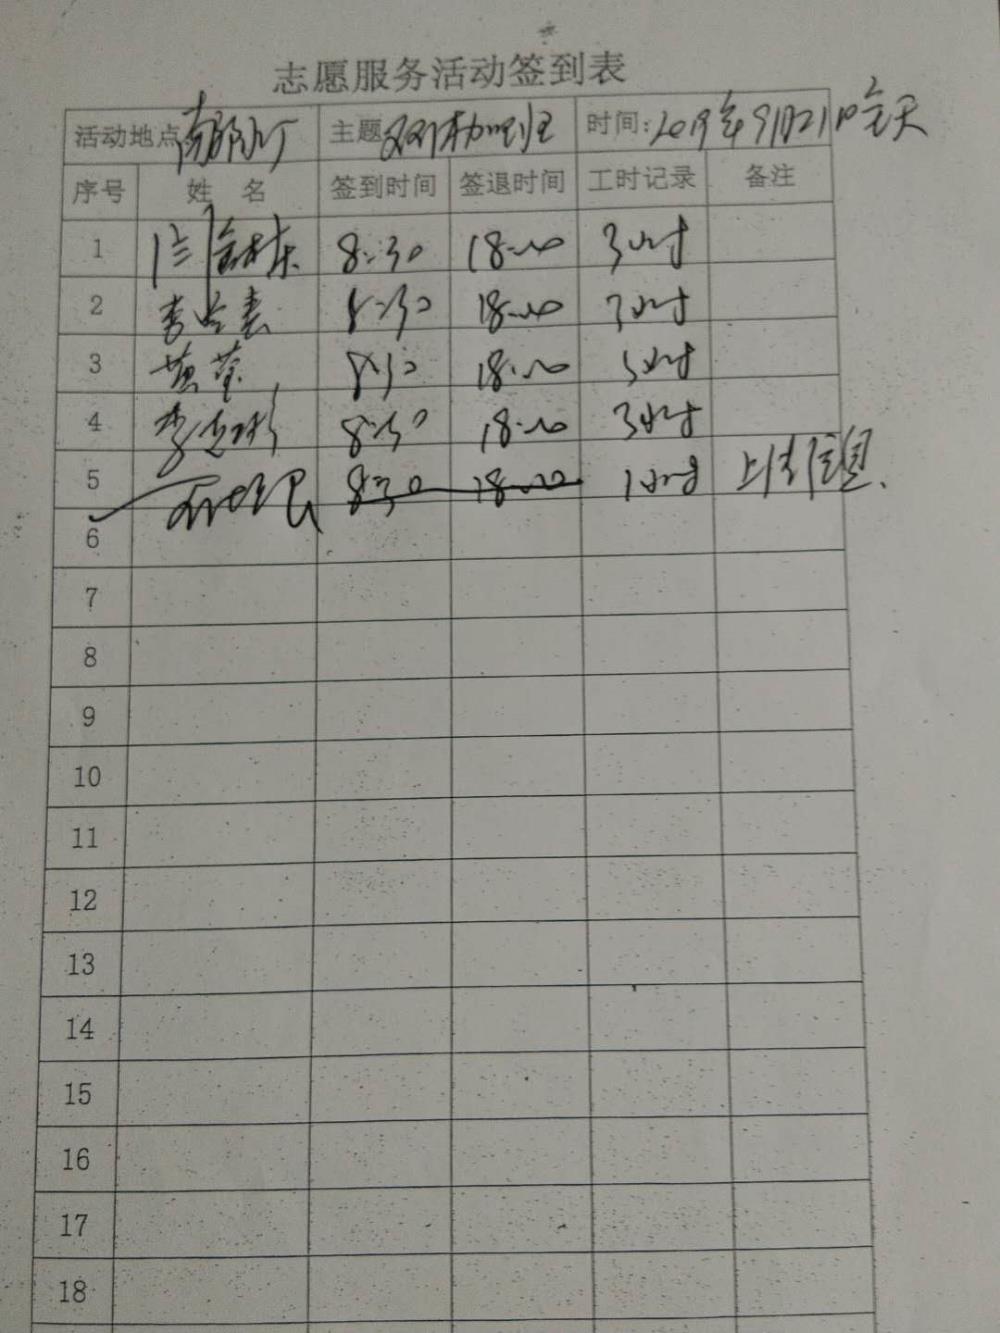 志愿服务活动签到表
活动地点 主题 时间:2019年9月21日全天
序号 姓 名 签到时间 签退时间 工时记录 备注
1 8:30 18:00 3小时
2 李 春 8:30 18:00 3小时
3 黄莹 8:30 18:00 3小时
4 李 彬 8:30 18:00 3小时
5 8:30 18:00 1小时 上传信息.
6
7
8
9
10
11
12
13
14
15
16
17
18